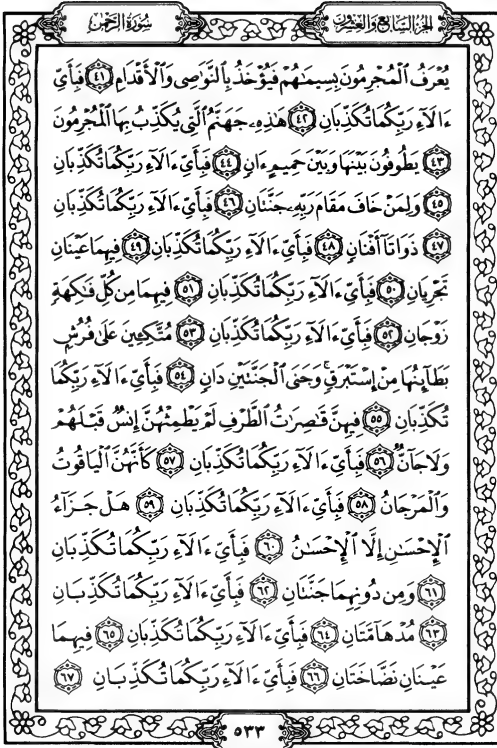 سُورَةُ الرَّحۡمٰن
الجُزءُ السَّابِعُ وَالعِشرُونَ
يُعۡرَفُ ٱلۡمُجۡرِمُونَ بِسِيمَٰهُمۡ فَيُؤۡخَذُ بِٱلنَّوَٰصِي وَٱلۡأَقۡدَامِ ٤١ فَبِأَيِّ
ءَالَآءِ رَبِّكُمَا تُكَذِّبَانِ ٤٢ هَٰذِهِۦ جَهَنَّمُ ٱلَّتِي يُكَذِّبُ بِهَا ٱلۡمُجۡرِمُونَ
٤٣ يَطُوفُونَ بَيۡنَهَا وَبَيۡنَ حَمِيمٍ ءَانٖ ٤٤ فَبِأَيِّ ءَالَآءِ رَبِّكُمَا تُكَذِّبَانِ
٤٥ وَلِمَنۡ خَافَ مَقَامَ رَبِّهِۦ جَنَّتَانِ ٤٦ فَبِأَيِّ ءَالَآءِ رَبِّكُمَا تُكَذِّبَانِ
٤٧ ذَوَاتَآ أَفۡنَانٖ ٤٨ فَبِأَيِّ ءَالَآءِ رَبِّكُمَا تُكَذِّبَانِ ٤٩ فِيهِمَا عَيۡنَانِ
تَجۡرِيَانِ ٥٠ فَبِأَيِّ ءَالَآءِ رَبِّكُمَا تُكَذِّبَانِ ٥١ فِيهِمَا مِن كُلِّ فَٰكِهَةٖ
زَوۡجَانِ ٥٢ فَبِأَيِّ ءَالَآءِ رَبِّكُمَا تُكَذِّبَانِ ٥٣ مُتَّكِـِٔينَ عَلَىٰ فُرُشِۭ
بَطَآئِنُهَا مِنۡ إِسۡتَبۡرَقٖۚ وَجَنَى ٱلۡجَنَّتَيۡنِ دَانٖ ٥٤ فَبِأَيِّ ءَالَآءِ رَبِّكُمَا
تُكَذِّبَانِ ٥٥ فِيهِنَّ قَٰصِرَٰتُ ٱلطَّرۡفِ لَمۡ يَطۡمِثۡهُنَّ إِنسٞ قَبۡلَهُمۡ
وَلَا جَآنّٞ ٥٦ فَبِأَيِّ ءَالَآءِ رَبِّكُمَا تُكَذِّبَانِ ٥٧ كَأَنَّهُنَّ ٱلۡيَاقُوتُ
وَٱلۡمَرۡجَانُ ٥٨ فَبِأَيِّ ءَالَآءِ رَبِّكُمَا تُكَذِّبَانِ ٥٩ هَلۡ جَزَآءُ
ٱلۡإِحۡسَٰنِ إِلَّا ٱلۡإِحۡسَٰنُ ٦٠ فَبِأَيِّ ءَالَآءِ رَبِّكُمَا تُكَذِّبَانِ
٦١ وَمِن دُونِهِمَا جَنَّتَانِ ٦٢ فَبِأَيِّ ءَالَآءِ رَبِّكُمَا تُكَذِّبَانِ
٦٣ مُدۡهَآمَّتَانِ ٦٤ فَبِأَيِّ ءَالَآءِ رَبِّكُمَا تُكَذِّبَانِ ٦٥ فِيهِمَا
عَيۡنَانِ نَضَّاخَتَانِ ٦٦ فَبِأَيِّ ءَالَآءِ رَبِّكُمَا تُكَذِّبَانِ ٦٧
٥٣٣